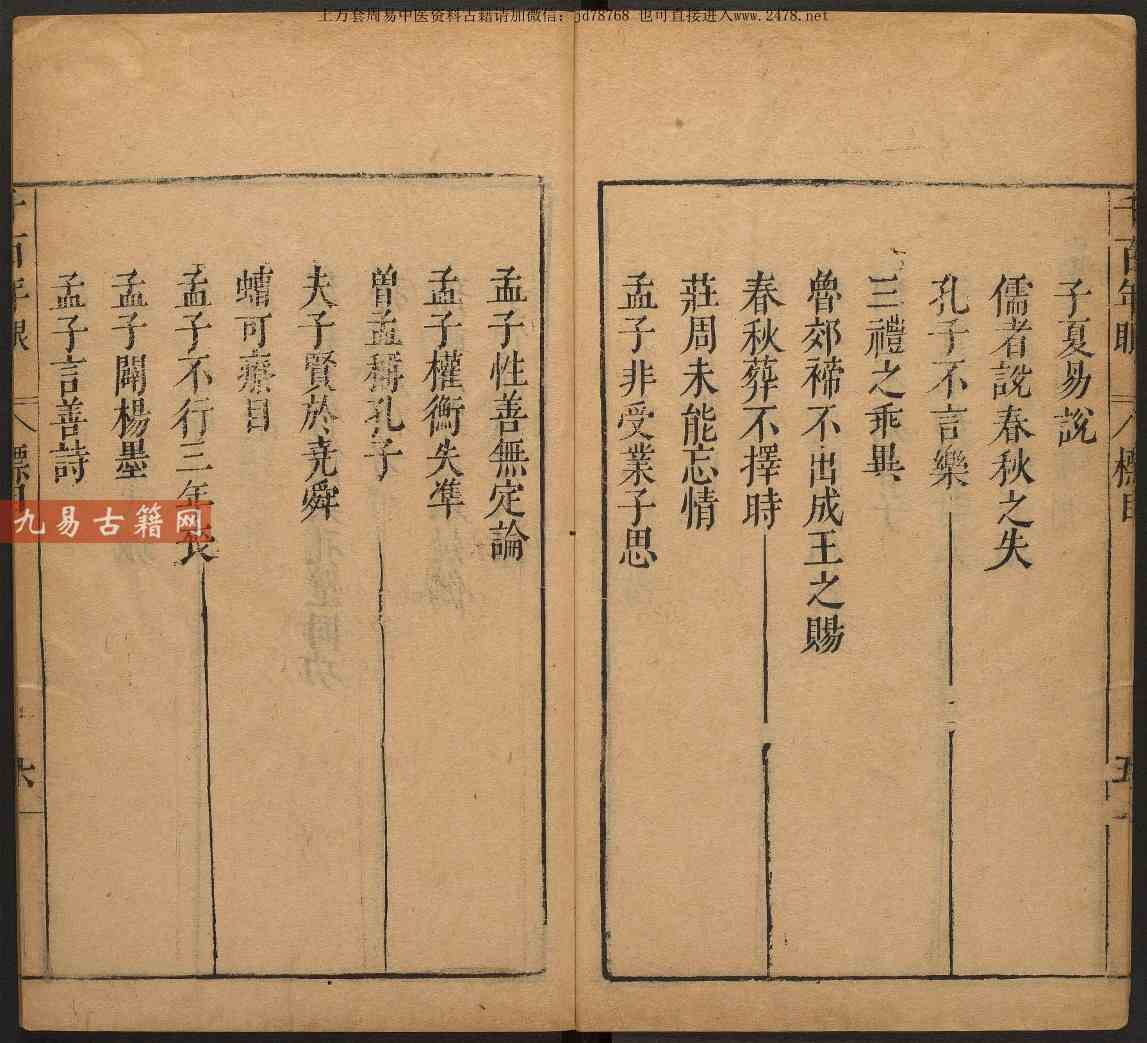 上万套周易中医资料古籍请加微信：pd78768 也可直接进入www.2478.net
子夏易説
儒者説春秋之失
孔子不言樂
三禮之乖異
魯郊禘不出成王之賜
春秋葬不擇時
莊周未能忘情
孟子非受業子思
孟子性善無定論
孟子權衡失凖
曽孟稱孔子
夫子賢於尭舜
蠐可療目
孟子不行三年喪
孟子闢楊墨
孟子言善詩
千百年眼
標目
六
九易古籍网